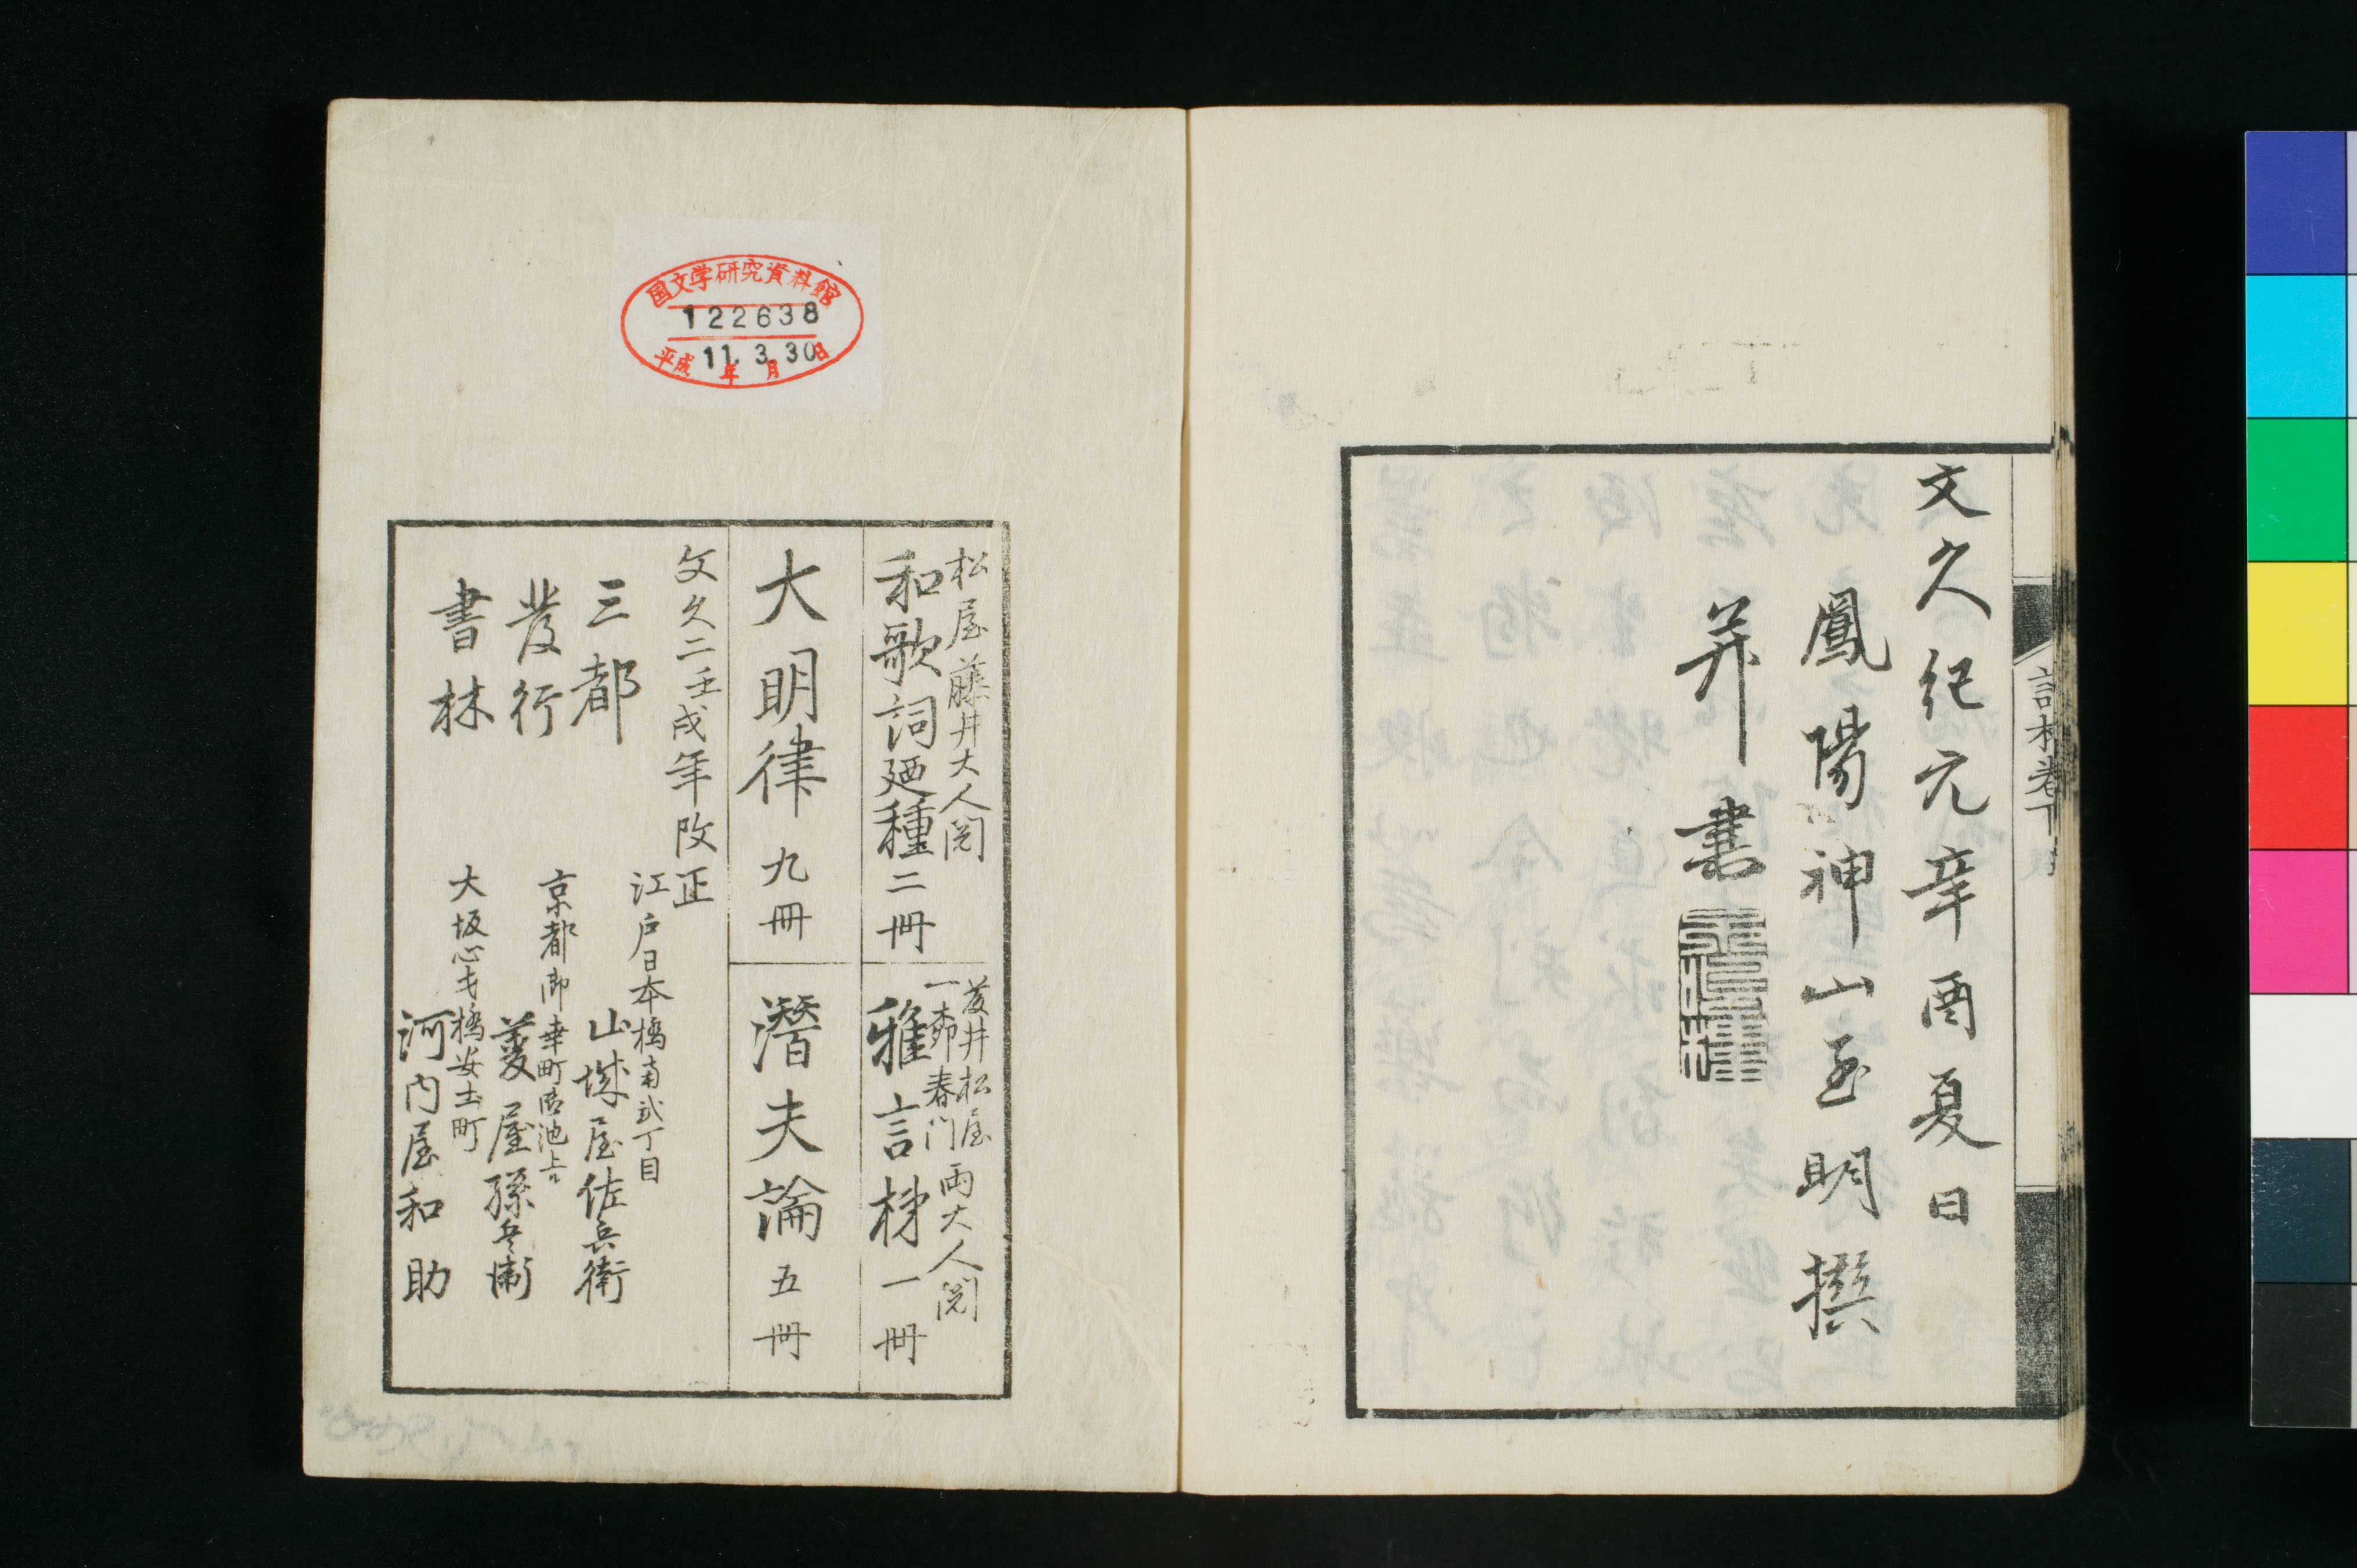 文久紀元辛酉夏日
鳳陽神山至明撰
并書
松屋藤井大人閲
和歌詞廼種二冊
藤井松屋
一柳春門
両大人閲
雅言梯一冊
大明律九冊
潜夫論五冊
文久二壬戌年改正
三都
發行
書林
江戸日本橋南弐丁目
山城屋佐兵衛
京都御幸町御池上
菱屋孫兵衛
大坂心才橋安土町
河内屋和助
国文学研究資料館
122638
平成11年3月30日